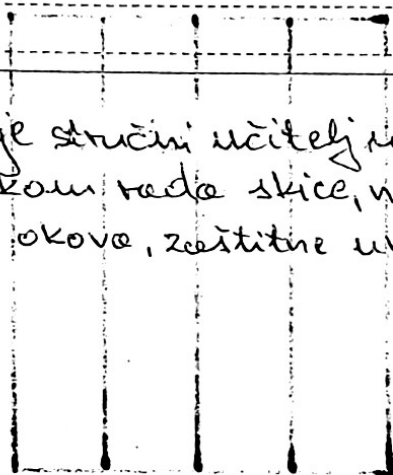 je stručni učitelj u
kom rada skice, n
okova, zaštitne u